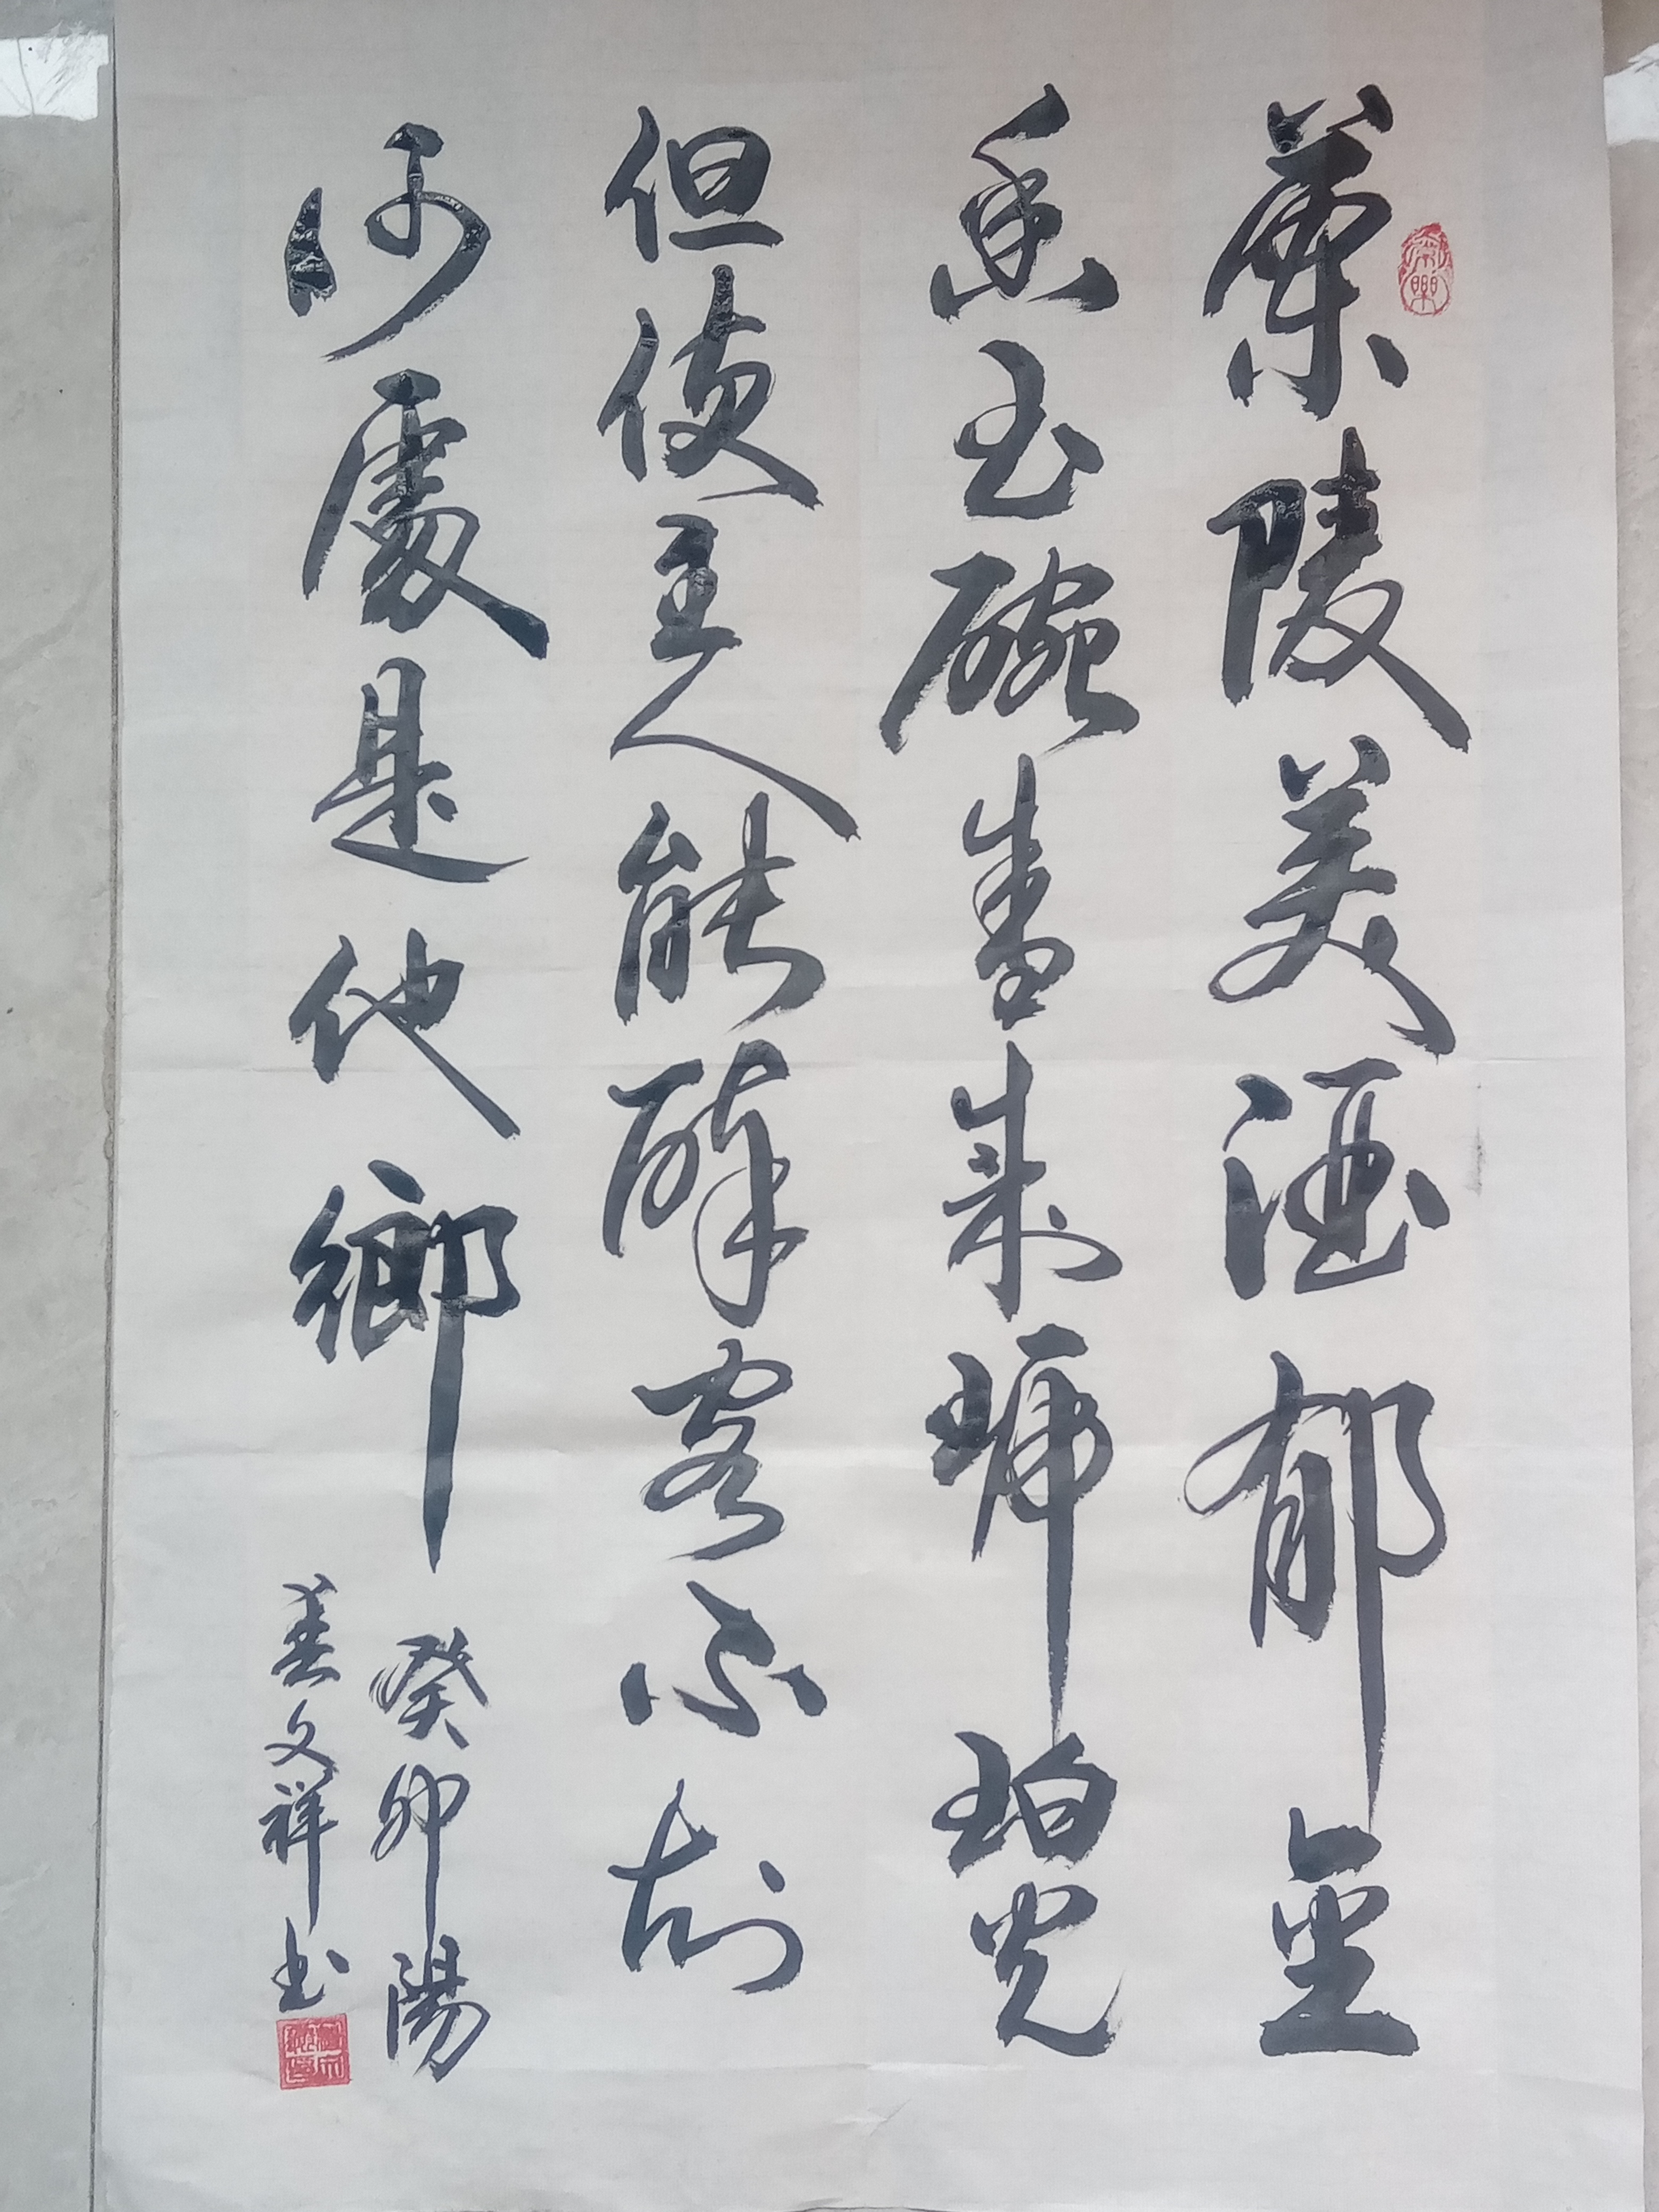 蘭陵美酒郁金
香玉碗盛來琥珀光
但使主人能醉客不知
何處是他鄉
癸卯陽
春文祥书